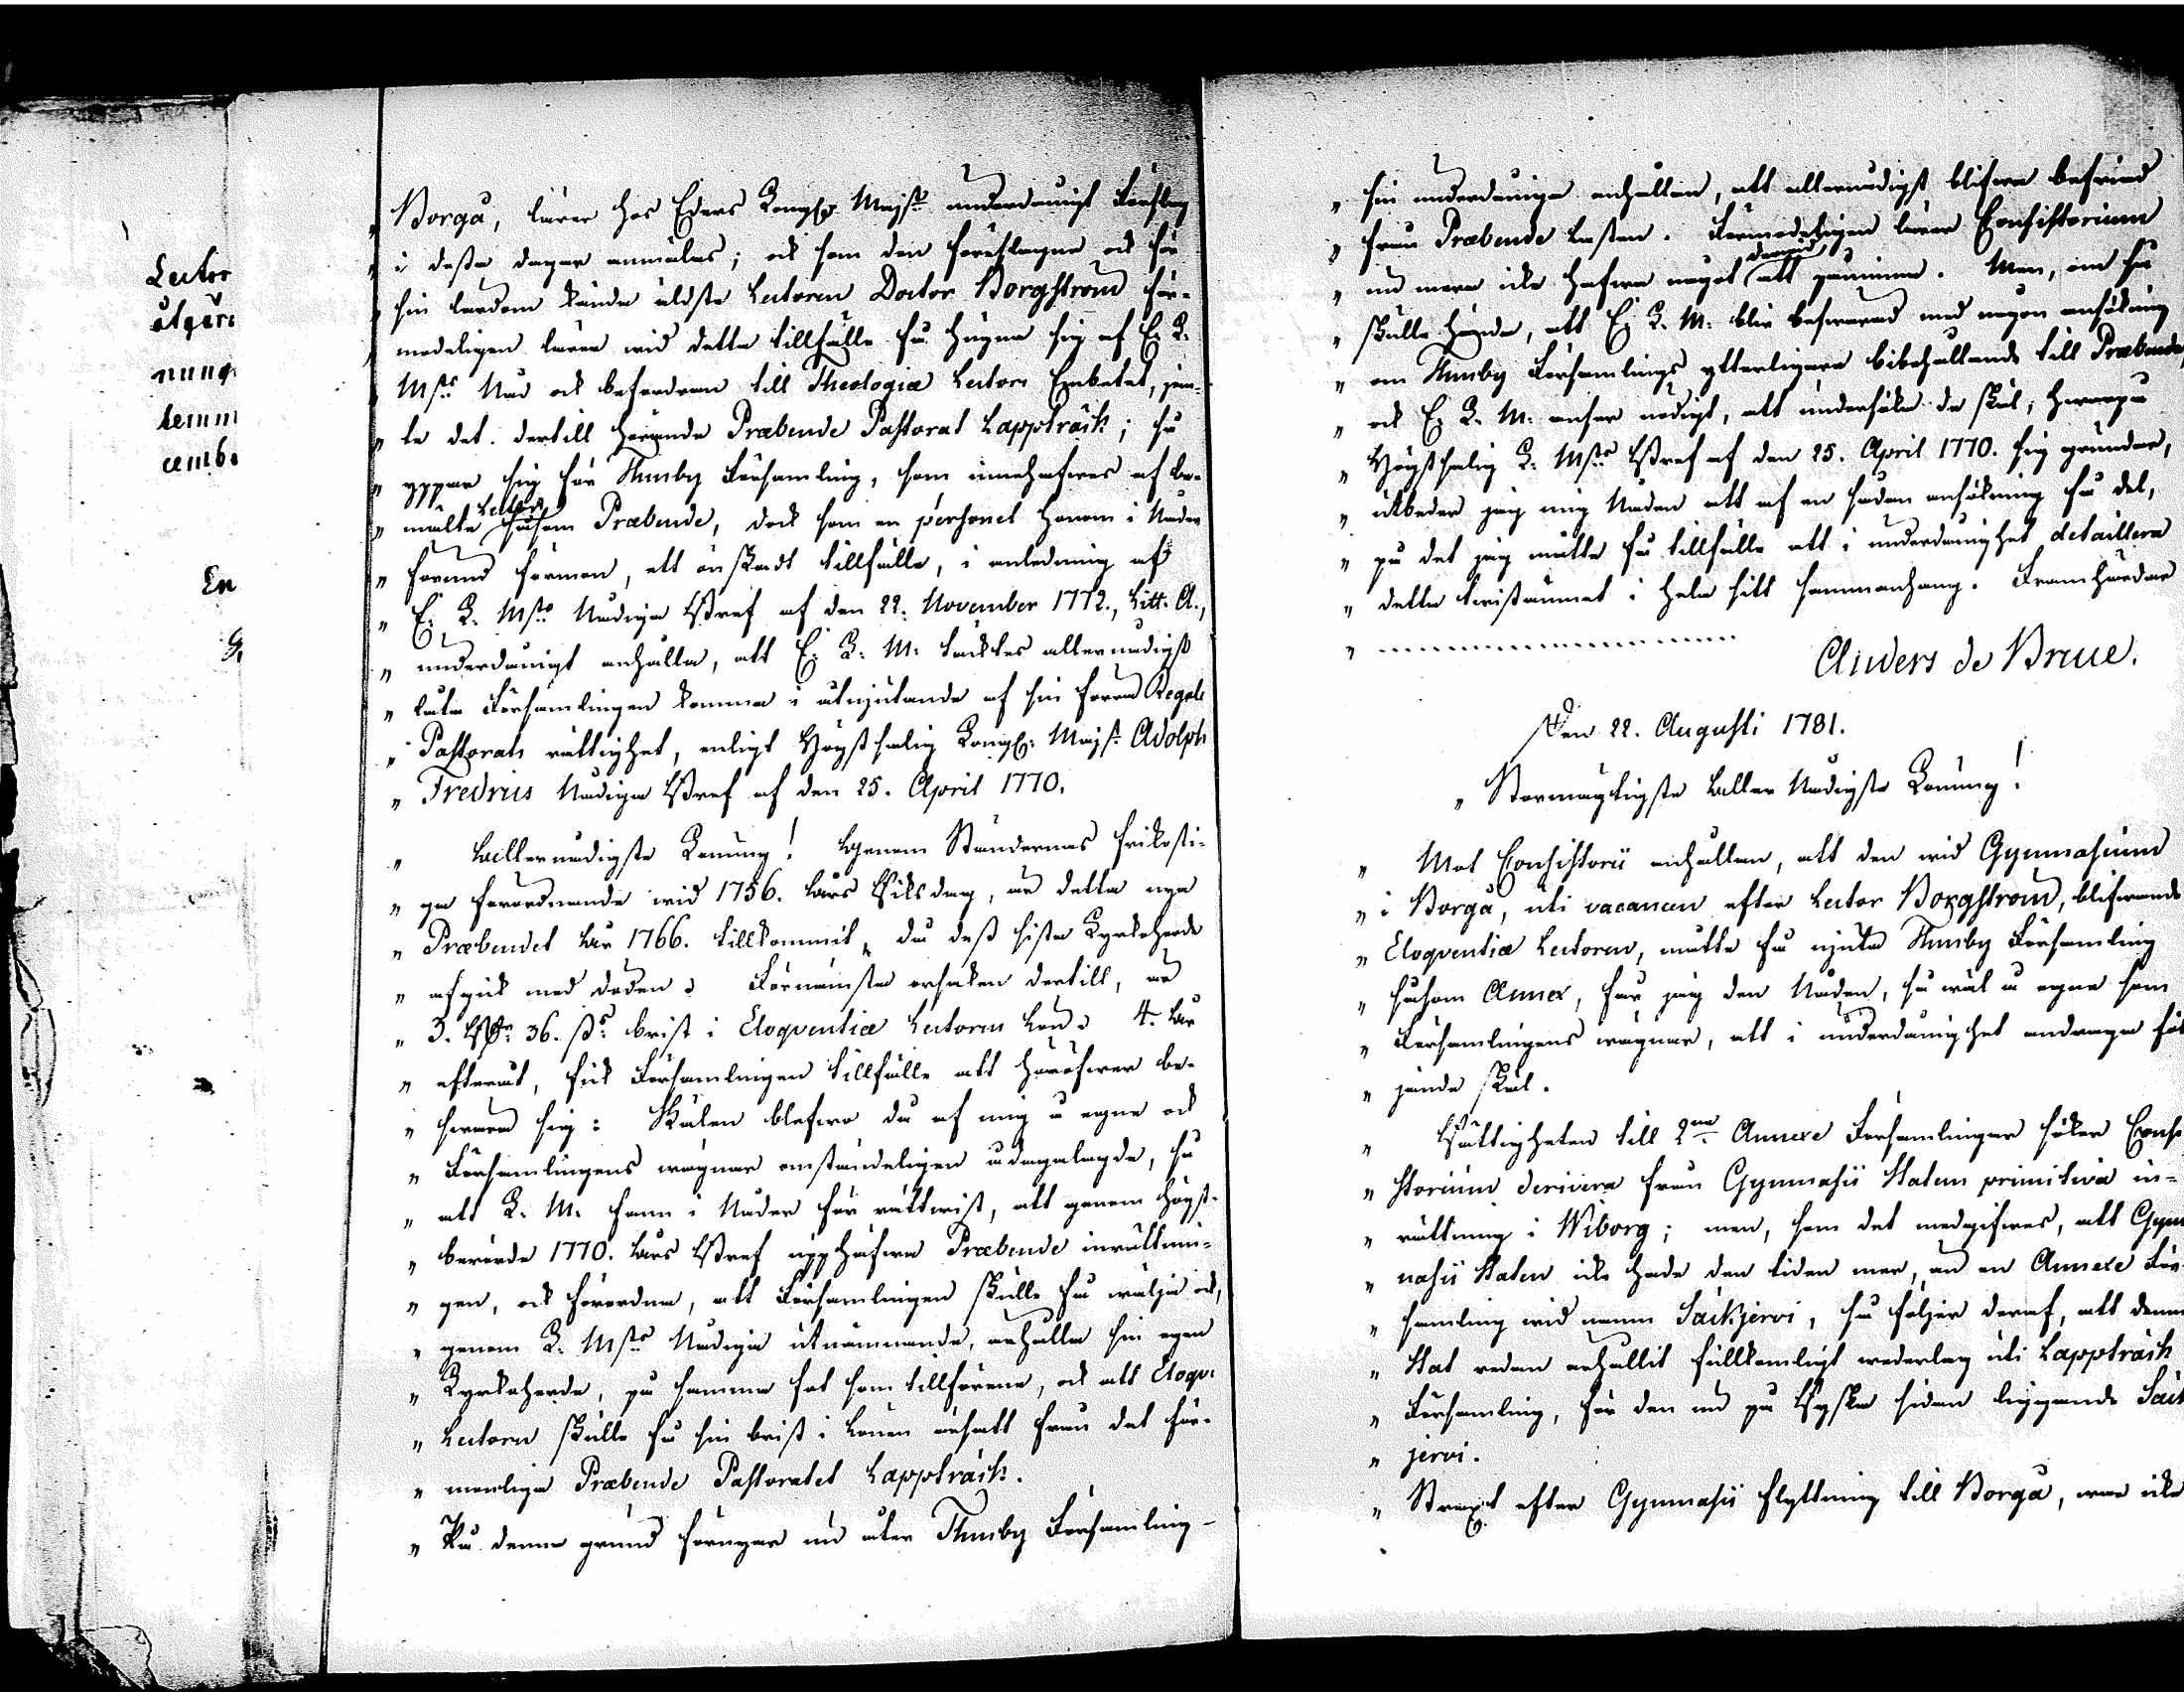 Lector
utgöre
nung
temm
cemb.
En
G
„ Borgå, lärer hos Eders Kongl. Majst: underdånigt Förslag
„ i dessa dagar anmälas; och som den föreslagne och för
„ sin lärdom kände äldste Lectoren Doctor Borgström för-
„ modeligen lärer wid detta tillfälle få hugna sig af E. K.
„ Msts Nåd och befordran till Theologiæ Lectors Embetet, jem-
„ te det dertill hörande Præbende Pastorat Lappträsk; så
„ yppar sig för Thusby Församling, som innehafwes af be-
„ mälte Lector såsom Præbende, dock som en personel honom i Nåder
„ förund förmon, ett önskadt tillfälle, i anledning af
„ E. K. Msts Nådiga Bref af den 22. November 1772., Litt. A.,
„ underdånigt anhålla, att E. K. M. täcktes allernådigst
„ låta Församlingen komma i åtnjutande af sin förra Regale
„ Pastorats rättighet, enligt Högstsalig Kongl. Majst: Adolph
„ Fredrics Nådiga Bref af den 25. April 1770.
„ Allernådigste Konung! Genom Ständernas frikosti-
„ ga förordnande wid 1756. Års Riksdag, är detta nya
„ Præbendet År 1766. tillkommit, då dess sista Kyrkoherde
„ afgick med döden. Förnämsta orsaken dertill, är
„ 3. Rdr 36. ss: brist i Eloqventiæ Lectorens Lön. 4. År
„ efteråt, fick Församlingen tillfälle att häröfwer be-
„ swära sig: Skälen blefwo då af mig å egne och
„ Församlingens wägnar omständeligen ådagalagde, så
„ att K. M. fann i Nåder för rättwist, att genom högst-
„ berörde 1770. Års Bref upphäfwa Præbende inrättnin-
„ gen, och förordna, att Församlingen skulle få wälja och,
„ genom K. Msts Nådiga utnämnande, erhålla sin egen
„ Kyrkoherde, på samma fot som tillförene, och att Eloqv.
„ Lectoren skulle få sin brist i Lönen ersatt från det för-
„ monliga Præbende Pastoratet Lappträsk.
„ På denna grund förnyar nu åter Thusby Församling
„ sin underdåniga anhållan, att allernådigst blifwa befriad
„ från Præbende Lasten. Förmodeligen lärer Consistorium
„ nu mera icke hafwa något deremot att påminna. Men, om så
„ skulle hända, att E. K. M. blir beswärad med någon ansökning
„ om Thusby Församlings ytterligare bibehållande till Præbende,
„ och E. K. M. anser nödigt, att undersöka de skäl, hwarpå
„ Högstsalig K. Msts Bref af den 25. April 1770. sig grundar,
„ utbeder jag mig Nåden att af en sådan ansökning få del,
„ på det jag måtte få tillfälle att i underdånighet detaillera
„ detta twistämnet i hela sitt sammanhang. Framhärdar
„ ..............................
Anders de Bruce.
Den 22. Augusti 1781.
„ Stormägtigste Aller Nådigste Konung!
„ Mot Consistorii anhållan, att den wid Gymnasium
„ i Borgå, uti vacancen efter Lector Borgström, blifwande
„ Eloqventiæ Lectoren, måtte få njuta Thusby Församling
„ såsom Annex, har jag den Nåden, så wäl å egne som
„ Församlingens wägnar, att i underdånighet andraga föl
„ jande skäl.
„ Rättigheten till 2ne Annexe Församlingar söker Consi
„ storium derivera från Gymnasii Statens primitiva in-
„ rättning i Wiborg; men, som det medgifwes, att Gym
„ nasii Staten icke hade den tiden mer, än en Annexe För
„ samling wid namn Säckjerwi, så följer deraf, att denna
„ Stat redan erhållit fullkomligt wederlag uti Lappträsk
„ Församling, för den nu på Ryska sidan liggande Säck
„ jerwi.
„ Straxt efter Gymnasii flyttning till Borgå, war icke